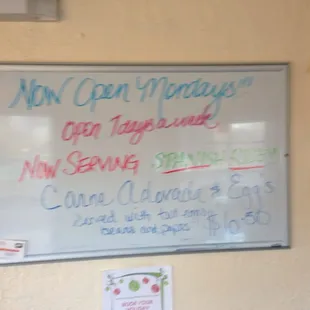 Now Open "Mondays"
Open 7 days a week
Now Serving
Carne Adovada & Egg's
Served with
beans and papas $10.50